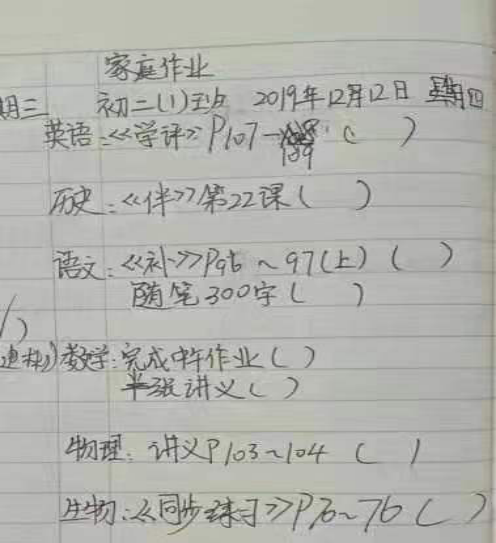 家庭作业
期三
初二(1)班 2019年12月12日 星期四
英语:《学评》P107-109 ( )
历史:《伴》第22课( )
语文:《补》P96~97(上) ( )
随笔300字( )
)
数学:完成中午作业( )
半张讲义( )
物理:讲义P103~104 ( )
生物:《同步练习》P70~76( )